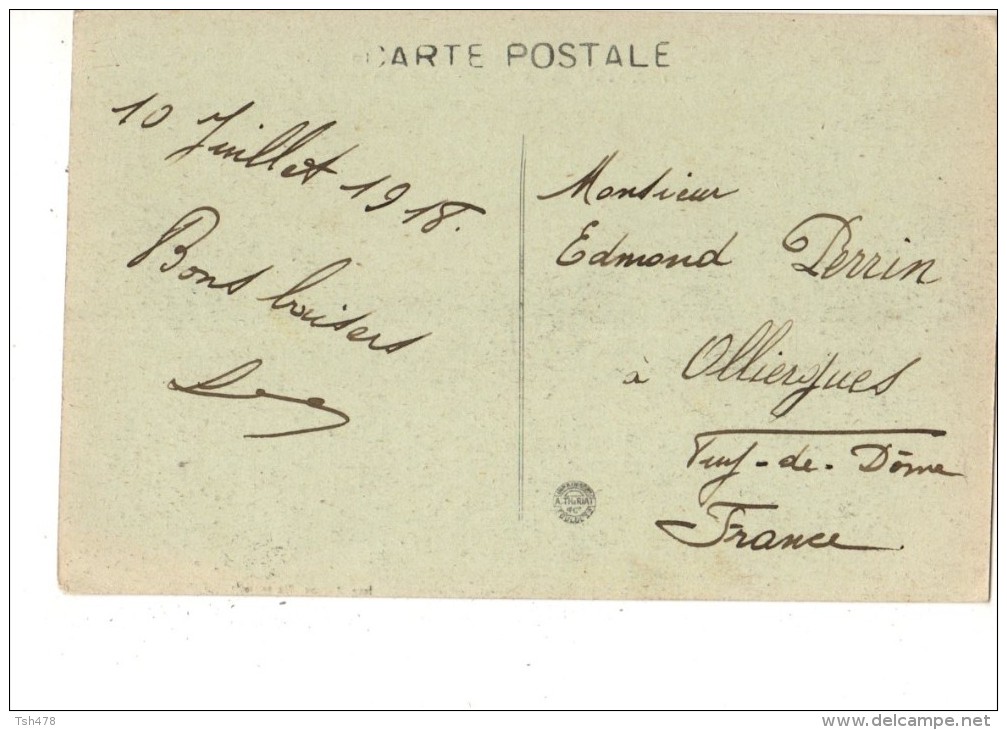 CARTE POSTALE
10 Juillet 1918.
Bons baisers
Monsieur
Edmond Perrin
à Olliergues
Puy-de-Dôme
France
A. THIRIAT
Tsh478
www.delcampe.net